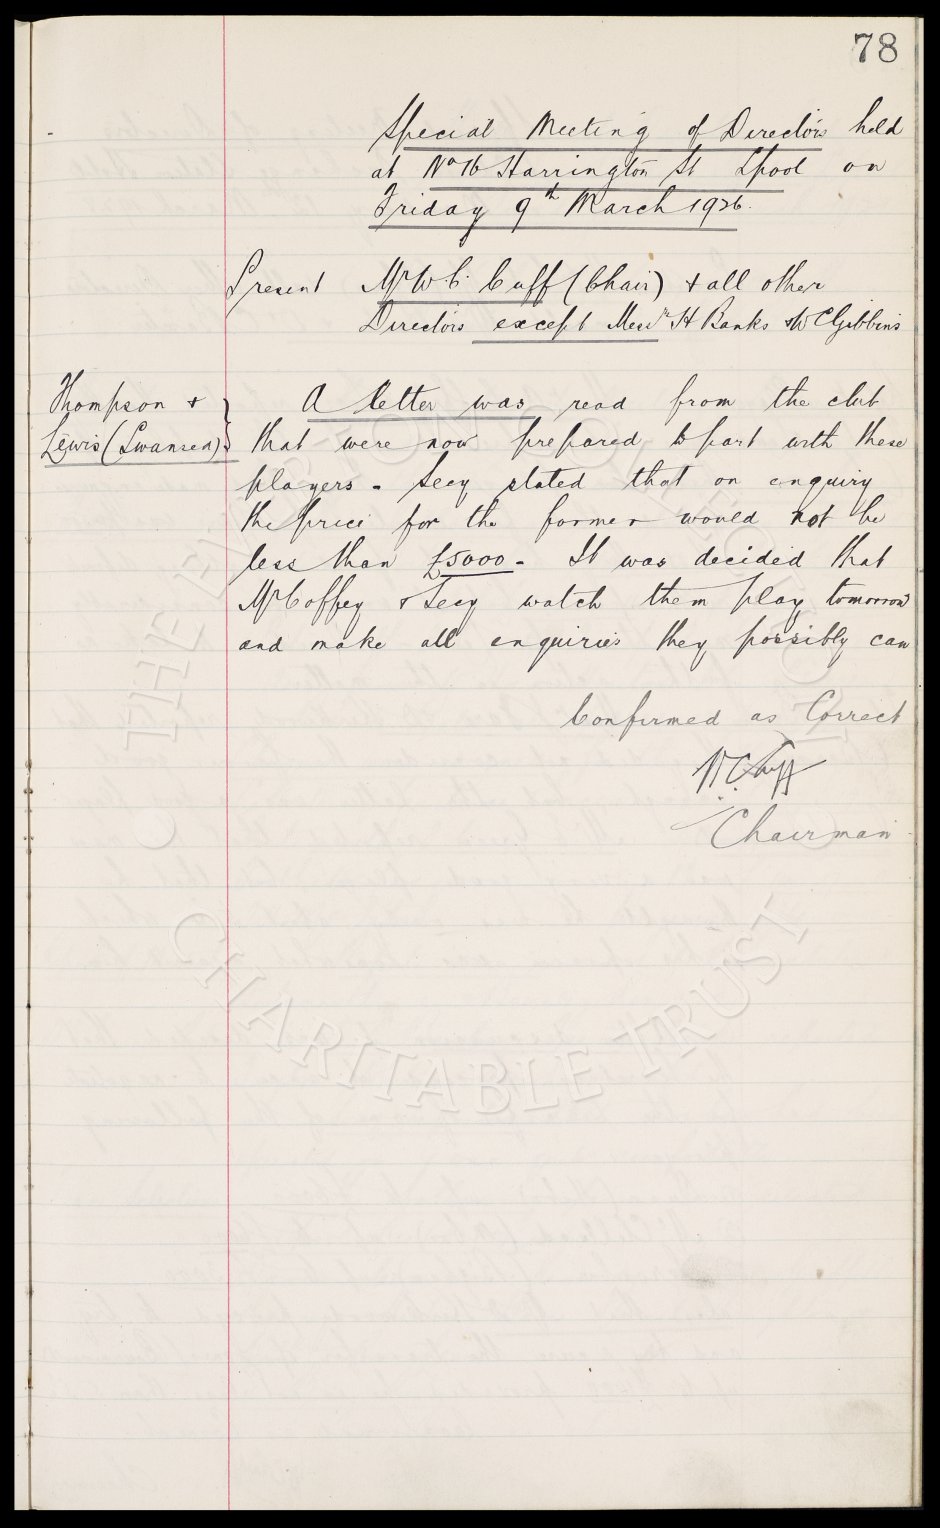 78
Special Meeting of Directors held
at No 16 Harrington St Lpool on
Friday 9th March 1926.
Present Mr W. C. Cuff (Chair) + all other
Directors except Messrs H Banks + W C Gibbins
Thompson +
Lewis (Swansea)
A letter was read from the club
that were now prepared to part with these
players - Secy stated that on enquiry
the price for the former would not be
less than £5000 - It was decided that
Mr Coffey & Secy watch them play tomorrow
and make all enquiries they possibly can
Confirmed as Correct
W C Cuff
Chairman
THE EVERTON COLLECTION
CHARITABLE TRUST